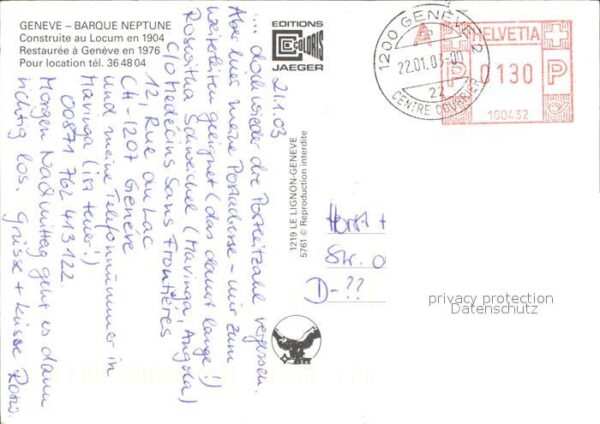 GENEVE – BARQUE NEPTUNE
Construite au Locum en 1904
Restaurée à Genève en 1976
Pour location tél. 36 48 04
EDITIONS
COLORIS
JAEGER
1219 LE LIGNON-GENEVE
5761 © Reproduction interdite
1200 GENÈVE 2
22.01.03-00
22
CENTRE COURRIER
A
HELVETIA
P 0130 P
100432
21.1.03
... doch wieder die Postleitzahl vergessen.
Aber hier meine Postadresse – nur zum
weiterleiten geeignet (das dauert lange!)
Roswitha (Mavinga, Angola)
c/o Médecins Sans Frontières
12, Rue du Lac
CH-1207 Genève
und meine Telefonnummer in
Mavinga (ist teuer!)
00871 762 413 122.
Morgen Nachmittag geht es dann
richtig los. Grüsse + Küsse
Horst +
Str. 0
D-??
privacy protection
Datenschutz